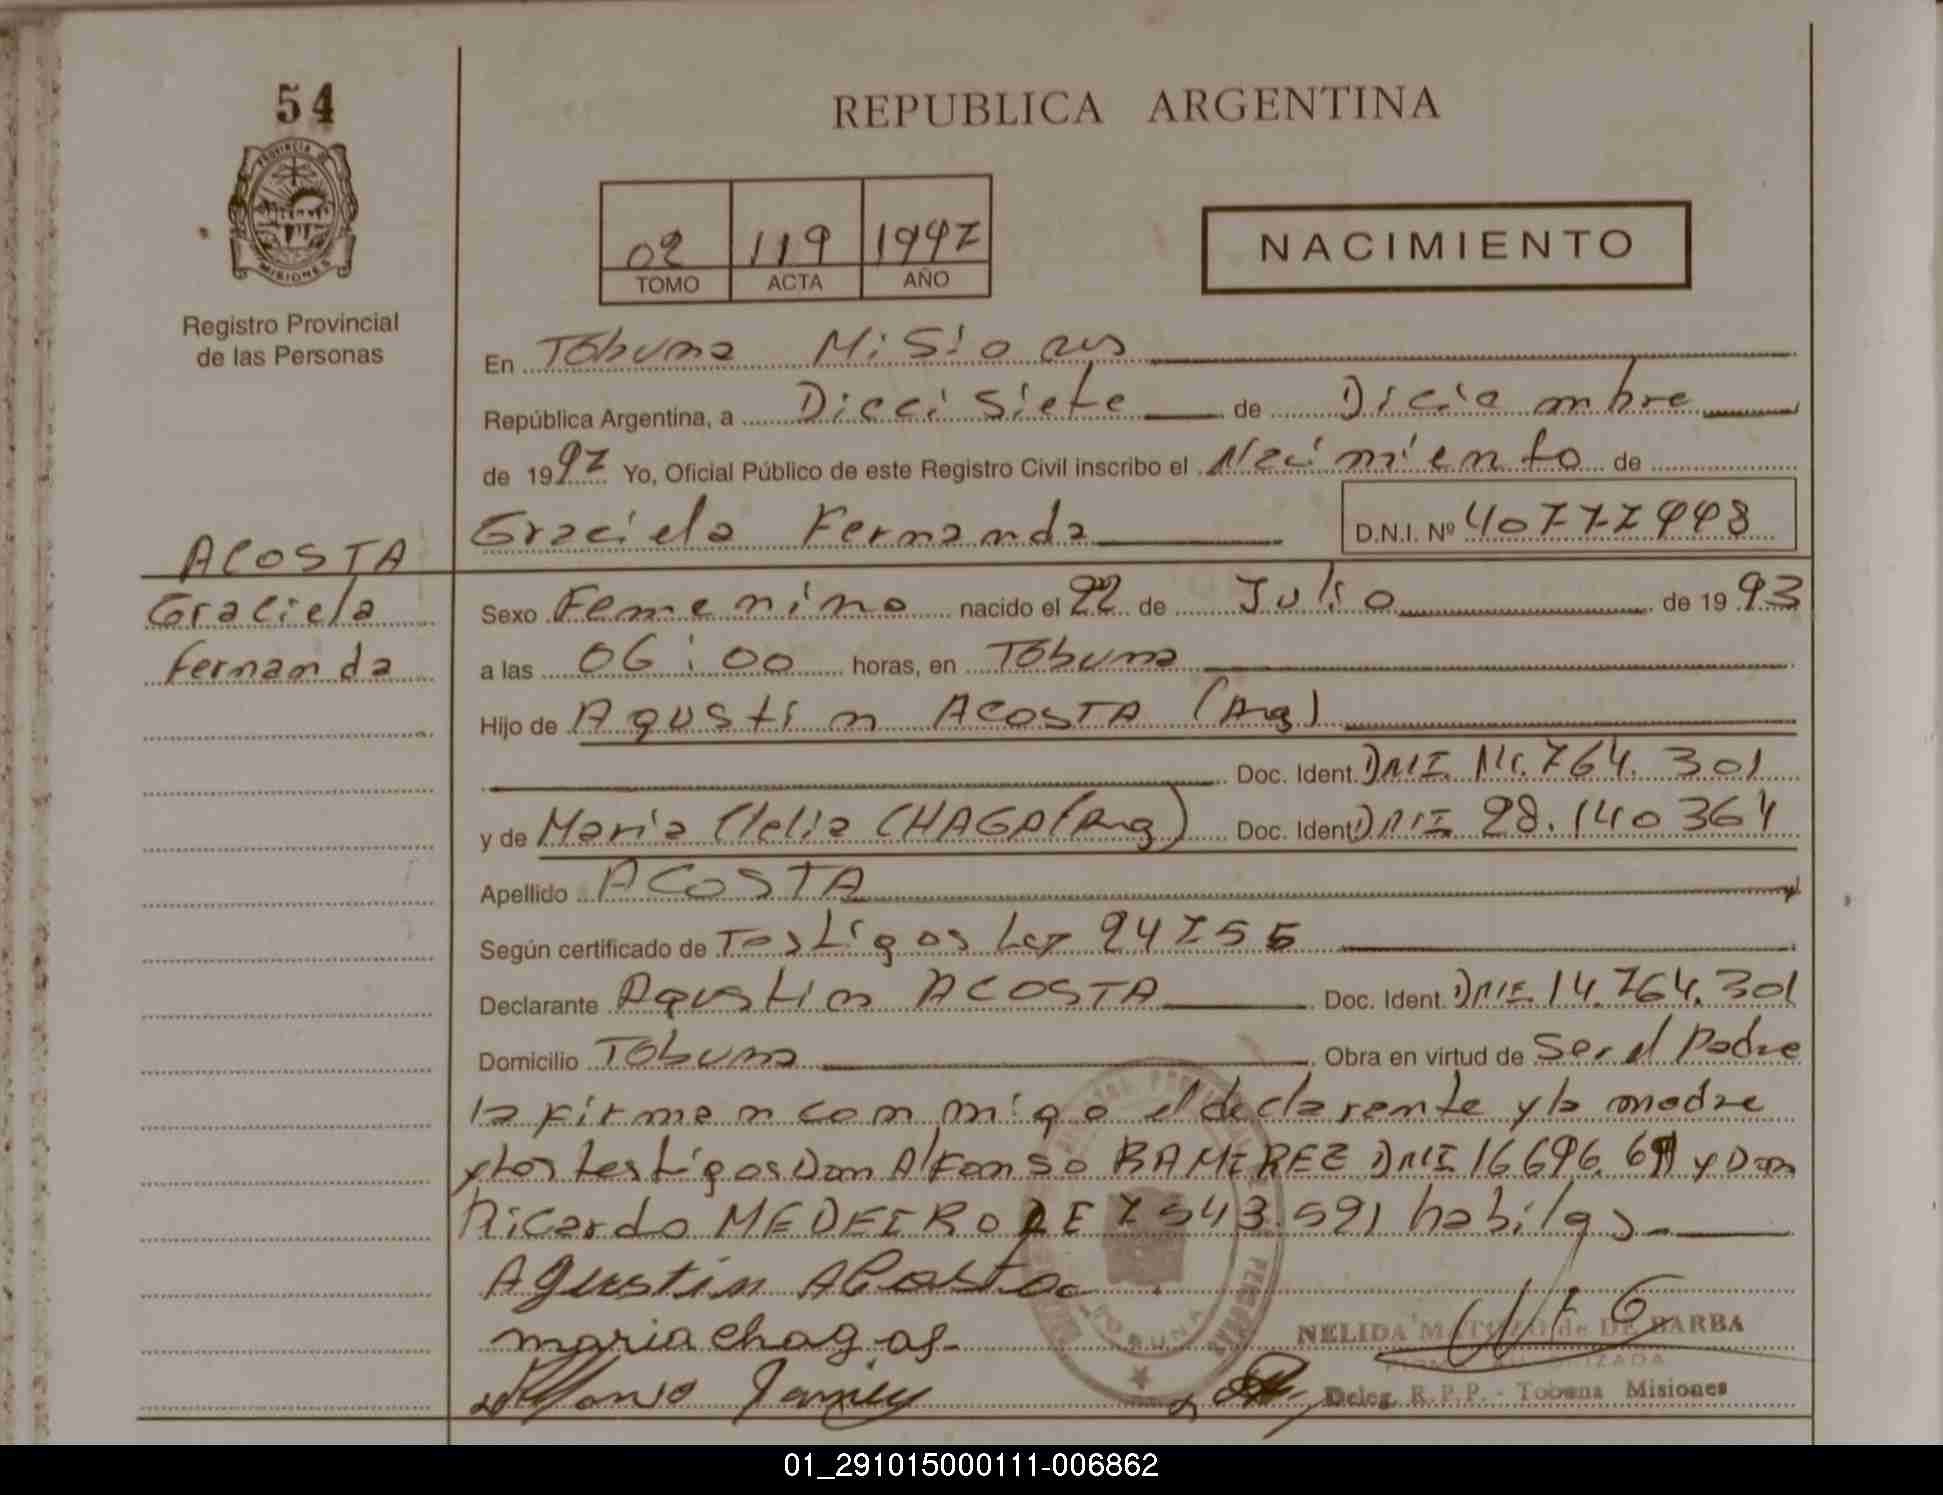 54
REPUBLICA ARGENTINA
PROVINCIA DE
MISIONES
Registro Provincial
de las Personas
02 119 1997
TOMO ACTA AÑO
NACIMIENTO
En Tobuna Misiones
República Argentina, a Diecisiete de Diciembre
de 1997 Yo, Oficial Público de este Registro Civil inscribo el Nacimiento de
Graciela Fernanda D.N.I. Nº 40777998
ACOSTA
Graciela
Fernanda
Sexo Femenino nacido el 22 de Julio de 1993
a las 06:00 horas, en Tobuna
Hijo de Agustin ACOSTA (Arg)
Doc. Ident. DNI 14.764.301
y de Maria Clelia CHAGA (Arg) Doc. Ident. DNI 28.140364
Apellido ACOSTA
Según certificado de Testigos Ley 24755
Declarante Agustin ACOSTA Doc. Ident. DNI 14.764.301
Domicilio Tobuna Obra en virtud de Ser el Padre
la firmen conmigo el declarente y la madre
y los testigos Don Alfonso RAMIREZ DNI 16696. y Don
Ricardo MEDEIRO LE 7543.591 habilgs
Agustin Acosta
maria chagas
Alfonso Ramirez
NELIDA de DE BARBA
AUTORIZADA
Deleg. R.P.P. - Tobuna Misiones
TOBUNA
01_291015000111-006862